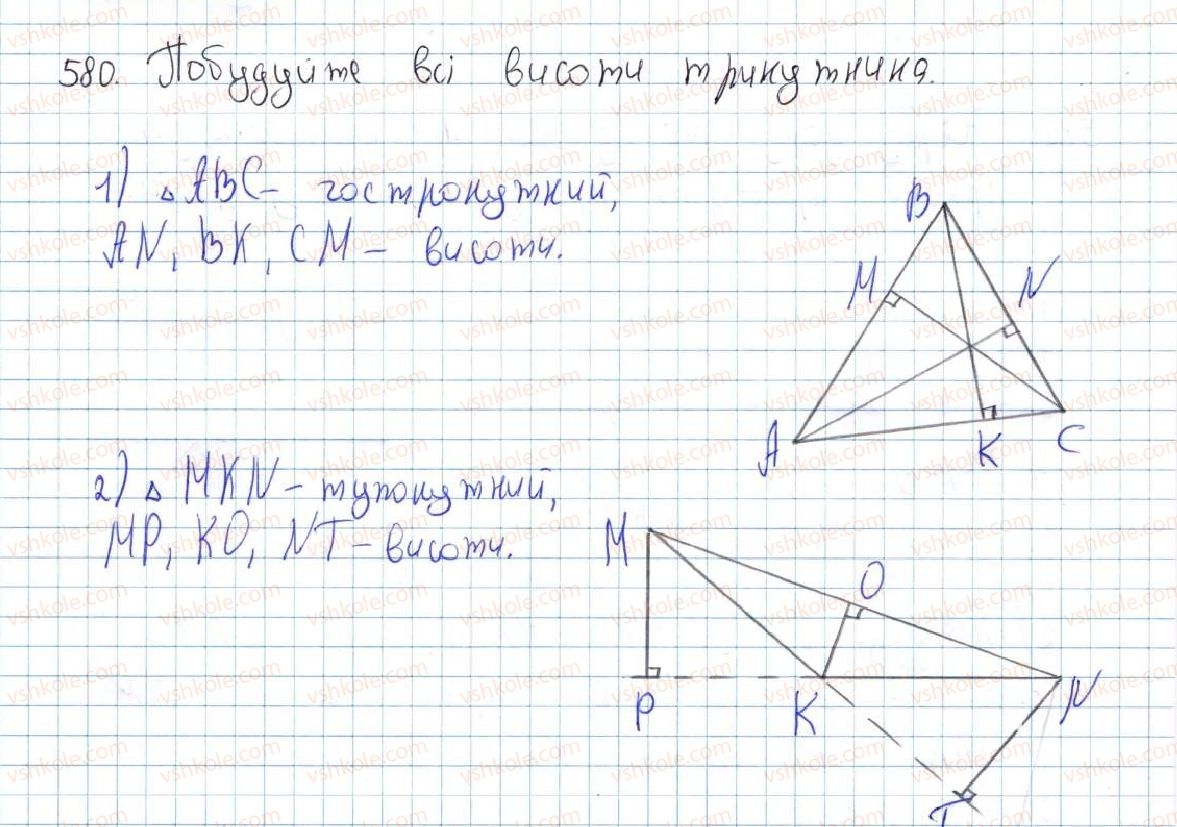 580. Побудуйте всі висоти трикутника.
1) △ABC – гострокутний,
AN, BK, CM – висоти.
B
M
N
A
K
C
2) △MKN – тупокутний,
MP, KO, NT – висоти.
M
O
P
K
N
T
vshkole.com